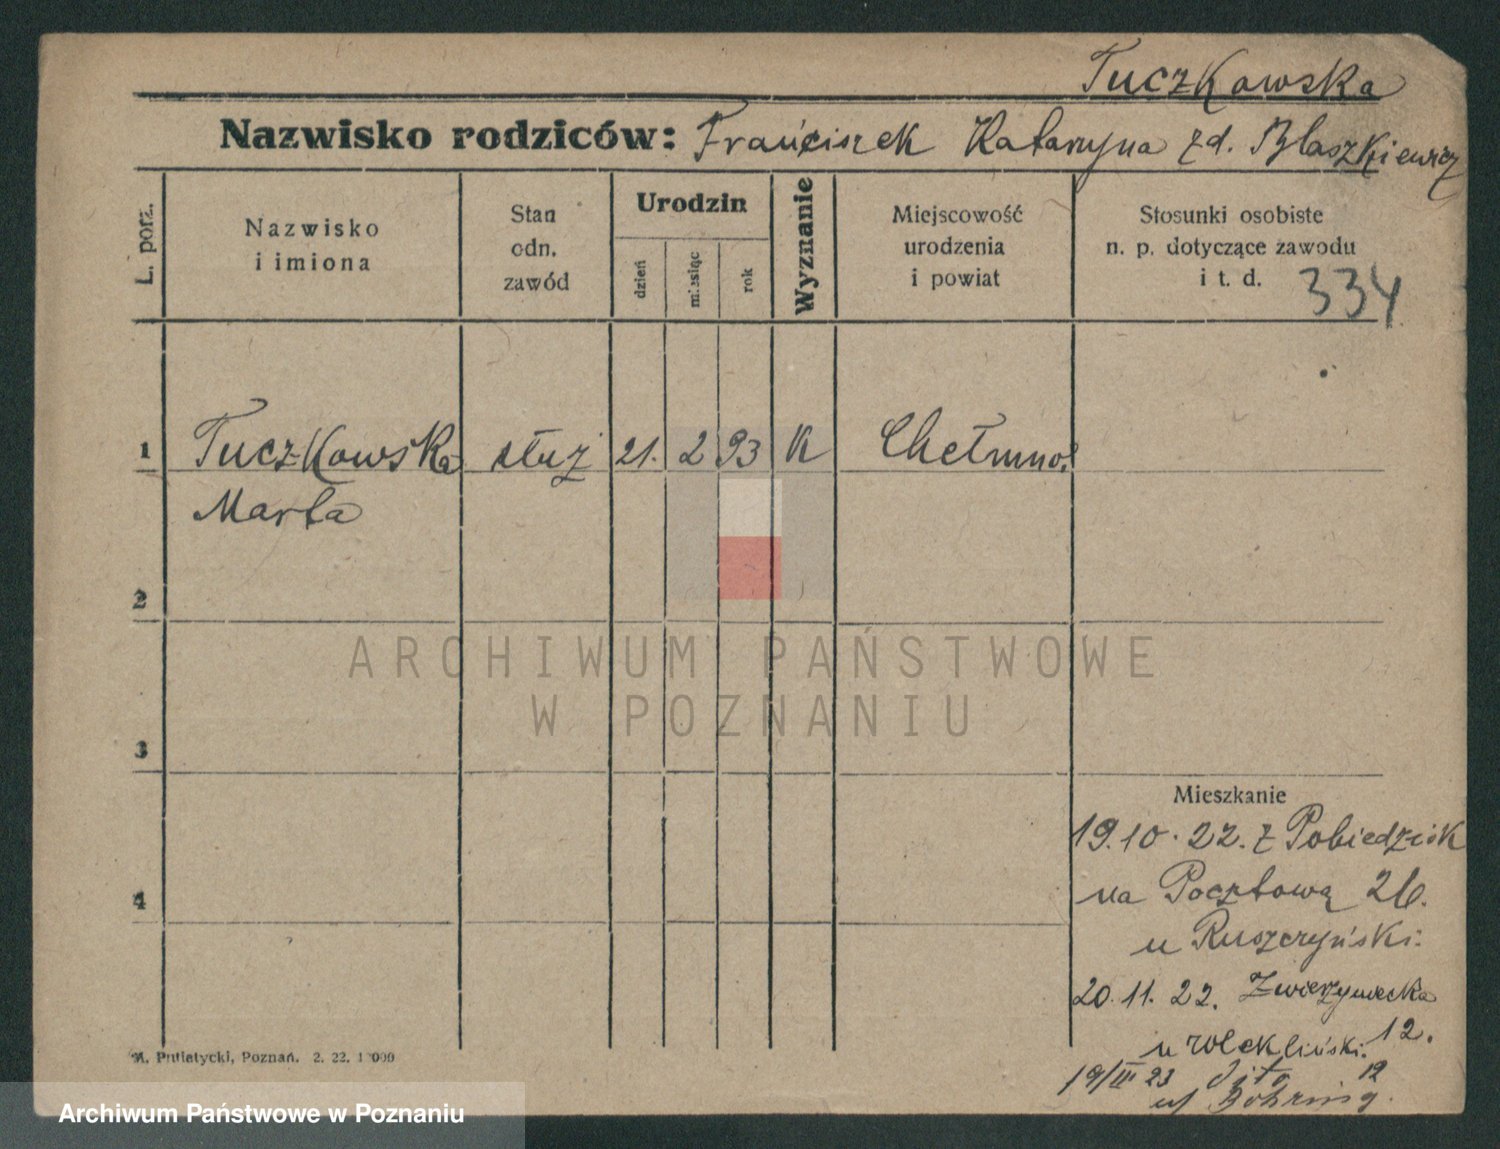 Tuczkowska
Nazwisko rodziców: Franciszek Katarzyna zd. Błaszkiewicz
L. porz.
Nazwisko
i imiona
Stan
odn.
zawód
Urodzin
dzień
miesiąc
rok
Wyznanie
Miejscowość
urodzenia
i powiat
Stosunki osobiste
n. p. dotyczące zawodu
i t. d.
334
1 Tuczkowska służ 21. 2 93 K Chełmno
Marta
2
3
4
Mieszkanie
19.10.22. z Pobiedzisk
na Pocztową 26.
u Ruszczyński.
20.11.22. Zwierzyniecka
12.
u
19/III 23 dito 12
u/ Böhring.
M. Putiatycki, Poznań. 2. 22.
ARCHIWUM PAŃSTWOWE
W POZNANIU
Archiwum Państwowe w Poznaniu